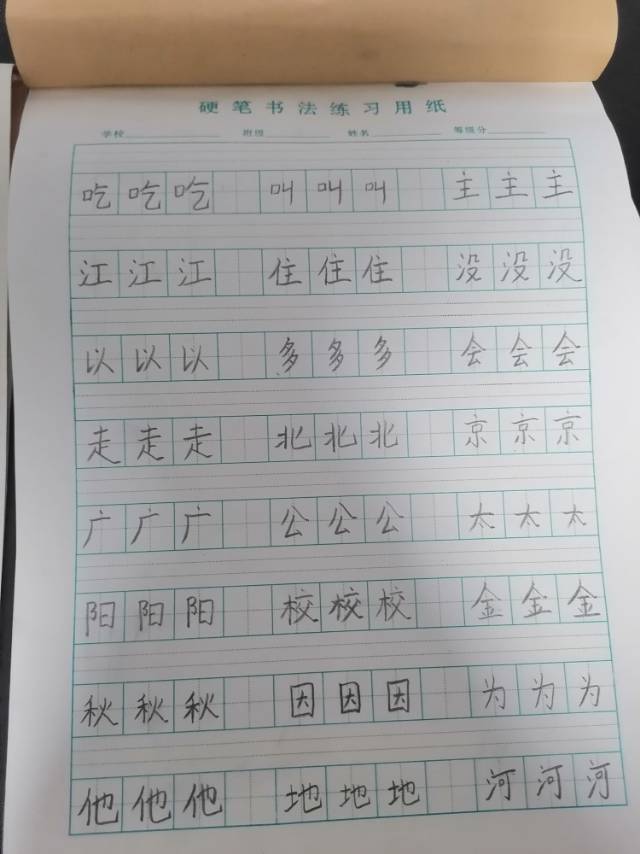 硬笔书法练习用纸
学校 班级 姓名 等级分
吃吃吃 叫叫叫 主主主
江江江 住住住 没没没
以以以 多多多 会会会
走走走 北北北 京京京
广广广 公公公 太太太
阳阳阳 校校校 金金金
秋秋秋 因因因 为为为
他他他 地地地 河河河